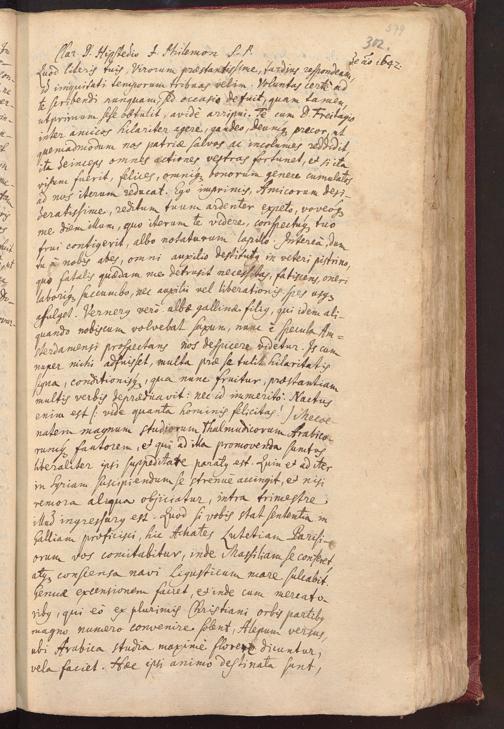 379
302.
Clar. D. Hipstedio F. Philemon S. P.
de Ao 1642.
Quod literis tuis, Virorum præstantissime, tardius respondeam,
id iniquitati temporum tribuas velim. Voluntas certè ad
te scribendi nunquam, sed occasio defuit, quam tamen,
utprimum sese obtulit, avidè arripui. Te cum D. Freitagio
inter amicos hilariter agere, gaudeo, Deumque precor, ut
quemadmodum vos patriæ salvos ac incolumes reddidit,
ita deinceps omnes actiones vestras fortunet, et si ita
visum fuerit, felices, omnique bonorum genere cumulatos
ad nos iterum reducat. Ego imprimis, Amicorum desi-
deratissime, reditum tuum ardenter expeto, voveoque
me diem illum, quo iterum te videre, conspectuque tuo
frui contigerit, albo notaturum lapillo. Interea, dum
tu à nobis abes, omni auxilio destitutus in veteri pistrino
quo fatalis quædam me detrusit necessitas, fatiscens, oneri
laborique succumbo, nec auxilii vel liberationis spes usque
affulget. Vernerus verò albæ gallinæ filius, qui idem ali-
quando nobiscum volvebat saxum, nunc è specula Am-
sterdamensi prospectans nos despicere videtur. Is cum
nuper nobis adfuisset, multa præ se tulit hilaritatis
signa, conditionisque, qua nunc fruitur, præstantiam
multis verbis deprædicavit: nec id immeritò. Nactus
enim est (: vide quanta hominis felicitas! :) Mecoe-
natem magnum studiorum Thalmudicorum Arabico-
rumque fautorem, et qui ad illa promovenda sumtus
liberaliter ipsi suppeditare paratus est. Quin et ad iter
in Syriam suscipiendum se strenuè accingit, et nisi
remora aliqua objiciatur, intra trimestre
illud ingressurus est. Quod si vobis stat sententia in
Galliam proficisci, hic Achates Lutetiam Parisi-
orum vos comitabitur, inde Massiliam se conferet
atque conscensa navi Ligusticum mare sulcabit.
Genuæ excensionem faciet, et inde cum mercato-
ribus, qui eò ex plurimis Christiani orbis partibus
magno numero convenire solent, Alepum versus,
ubi Arabica studia maximè florere dicuntur,
vela faciet. Hæc ipsi animo destinata sunt,